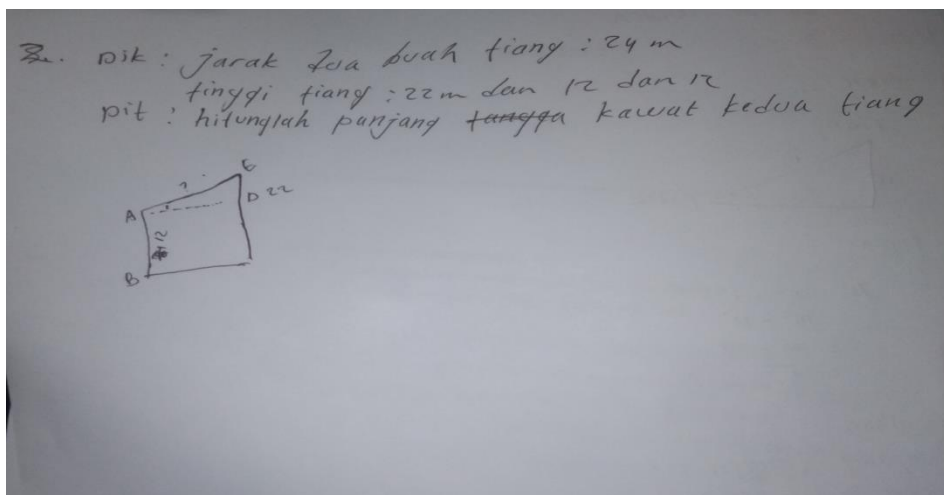 2. Dik : jarak dua buah tiang : 24 m
tinggi tiang : 22 m dan 12 dan 12
Dit : hitunglah panjang tangga kawat kedua tiang
E
?
A
D 22
12
B